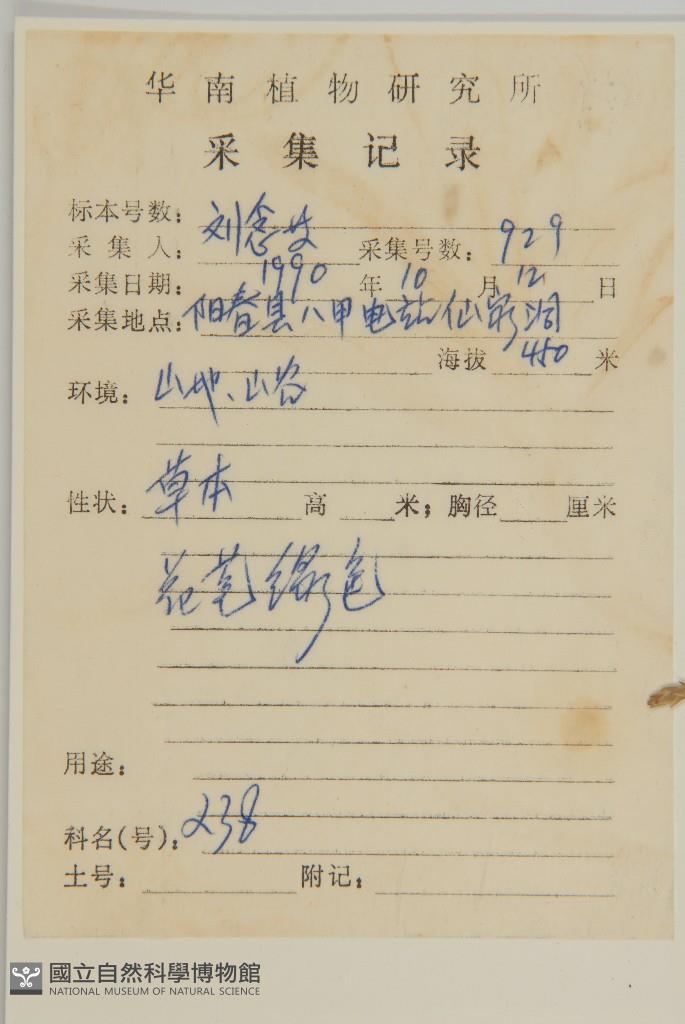 华南植物研究所
采集记录
标本号数：
采集人：刘念 采集号数：929
采集日期：1990年10月12日
采集地点：阳春县八甲电站仙家洞
海拔450米
环境：山地、山谷
性状：草本 高 米；胸径 厘米
花 绿色
用途：
科名(号)：238
土号： 附记：
國立自然科學博物館
NATIONAL MUSEUM OF NATURAL SCIENCE